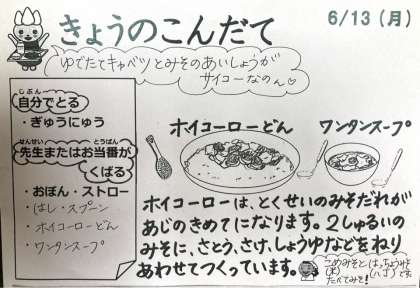 きょうのこんだて
6/13(月)
ゆでたてキャベツとみそのあいしょうが
サイコーなのん♡
じぶん
自分でとる
・ぎゅうにゅう
せんせい とうばん
先生またはお当番が
くばる
・おぼん・ストロー
・はし・スプーン
・ホイコーローどん
・ワンタンスープ
ホイコーローどん
ワンタンスープ
ホイコーローは、とくせいのみそだれが
あじのきめてになります。2しゅるいの
みそに、さとう、さけ、しょうゆなどをねり
あわせてつくっています。
こめみそとはっちょうみそ
です。
たべてみそ!